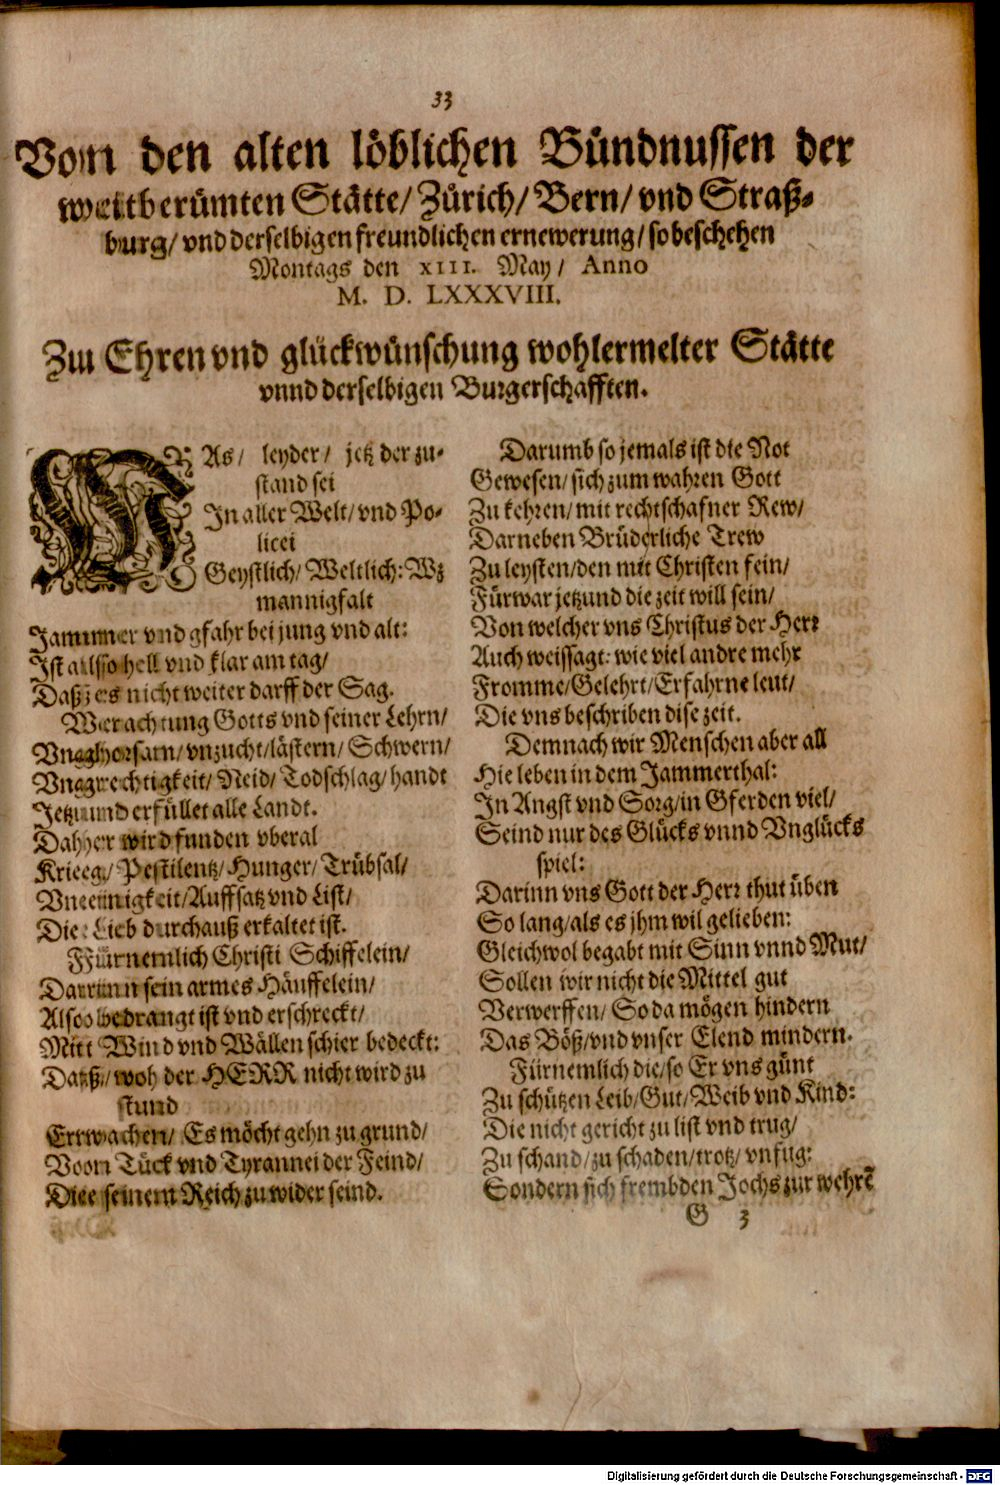 33
Vom den alten löblichen Bündnussen der
weitberümten Stätte/ Zürich/ Bern/ vnd Straß-
burg/ vnd derselbigen freundlichen ernewerung/ so beschehen
Montags den XIII. May/ Anno
M. D. LXXXVIII.
Zu Ehren vnd glückwünschung wohlermelter Stätte
vnnd derselbigen Burgerschafften.
WAs/ leyder/ jetz der zu-
stand sei
In aller Welt/ vnd Po-
licei
Geystlich/ Weltlich: Wz
mannigfalt
Jammer vnd gfahr bei jung vnd alt:
Ist allso hell vnd klar am tag/
Daß es nicht weiter darff der Sag.
Verachtung Gotts vnd seiner Lehrn/
Vnghorsam/ vnzucht/ lästern/ Schwern/
Vngrechtigkeit/ Neid/ Todschlag/ handt
Jetzund erfüllet alle Landt.
Daher wird funden vberal
Krieg/ Pestilentz/ Hunger/ Trübsal/
Vneinigkeit/ Auffsatz vnd List/
Die Lieb durchauß erkaltet ist.
Fürnemlich Christi Schiffelein/
Darinn sein armes Häuffelein/
Also bedrangt ist vnd erschreckt/
Mit Wind vnd Wällen schier bedeckt:
Daß/ woh der HERR nicht wird zu
stund
Erwachen/ Es möcht gehn zu grund/
Vom Tück vnd Tyrannei der Feind/
Die seinem Reich zu wider seind.
Darumb so jemals ist die Not
Gewesen/ sich zum wahren Gott
Zu kehren/ mit rechtschafner Rew/
Darneben Brüderliche Trew
Zu leysten/ den mit Christen fein/
Fürwar jetzund die zeit will sein/
Von welcher vns Christus der Herr
Auch weissagt: wie viel andre mehr
Fromme/ Gelehrt/ Erfahrne leut/
Die vns beschriben dise zeit.
Demnach wir Menschen aber all
Hie leben in dem Jammerthal:
In Angst vnd Sorg/ in Gferden viel/
Seind nur des Glücks vnnd Vnglücks
spiel:
Darinn vns Gott der Herr thut üben
So lang/ als es jhm wil gelieben:
Gleichwol begabt mit Sinn vnnd Mut/
Sollen wir nicht die Mittel gut
Verwerffen/ So da mögen hindern
Das Böß/ vnd vnser Elend mindern.
Fürnemlich die/ so Er vns günt
Zu schützen Leib/ Gut/ Weib vnd Kind:
Die nicht gericht zu list vnd trug/
Zu schand/ zu schaden/ trotz/ vnfug:
Sondern sich frembden Jochs zur wehrẽ
G 3
Digitalisierung gefördert durch die Deutsche Forschungsgemeinschaft - DFG